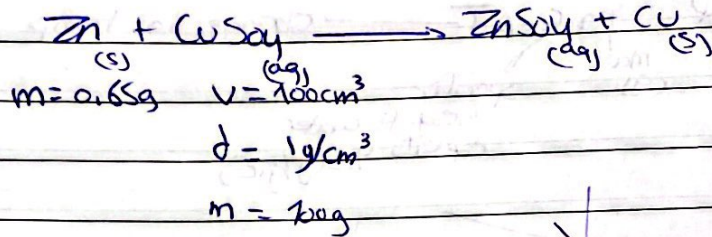 Zn + CuSO4 → ZnSO4 + Cu
(s) (aq) (aq) (s)
m = 0,65g v = 100cm³
d = 1g/cm³
m = 100g